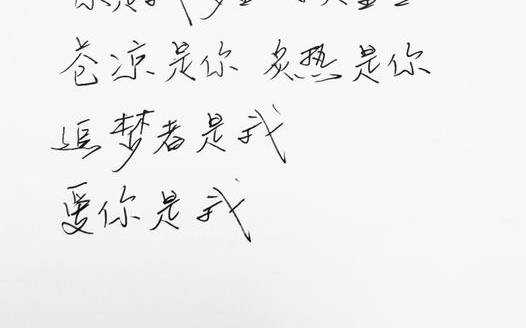 苍凉是你 炙热是你
追梦者是我
爱你是我